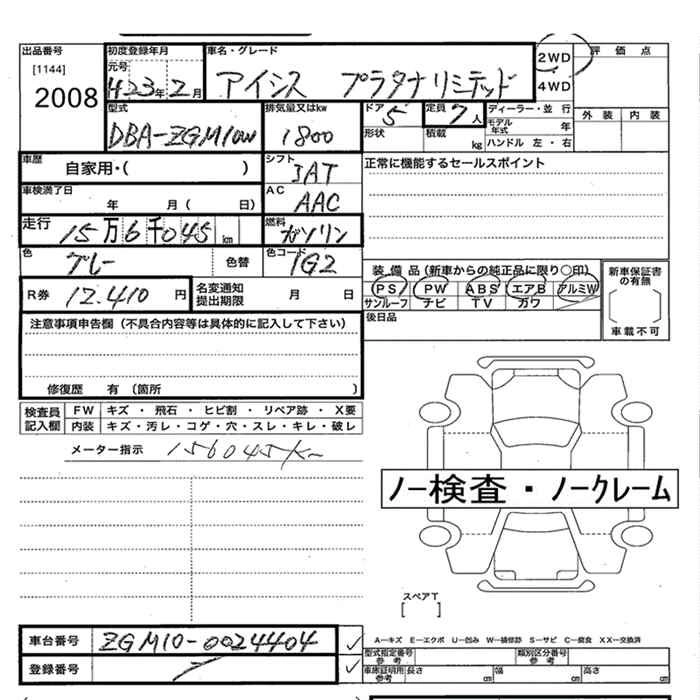 出品番号 初度登録年月 車名・グレード 2WD 評価点
[1144] 元号 423年2月 アイシス プラタナリミテッド 4WD
2008 外装 内装
型式 排気量又はkw ドア 5 定員 7人 ディーラー・並行
DBA-ZGM10W 1800 形状 積載 kg モデル年式 年
ハンドル 左・右
車歴 自家用・( ) シフト IAT 正常に機能するセールスポイント
車検満了日 年 月( 日) AC AAC
走行 15万6千045km 燃料 ガソリン
色 グレー 色替 色コード 1G2
装備品(新車からの純正品に限り○印) 新車保証書の有無
R券 12,410円 名変通知提出期限 月 日 PS PW ABS エアB アルミW
サンルーフ ナビ TV カワ
注意事項申告欄(不具合内容等は具体的に記入して下さい) 後日品 車載不可
修復歴 有(箇所 )
検査員記入欄 FW キズ・飛石・ヒビ割・リペア跡・X要
内装 キズ・汚レ・コゲ・穴・スレ・キレ・破レ
メーター指示 156045K
ノー検査・ノークレーム
スペアT
[ ]
車台番号 ZGM10-0024404 A―キズ E―エクボ U―凹み W―補修跡 S―サビ C―腐食 XX―交換済
型式指定番号 参考 類別区分番号 参考
登録番号 車庫証明用 参考 長さ cm 幅 cm 高さ cm